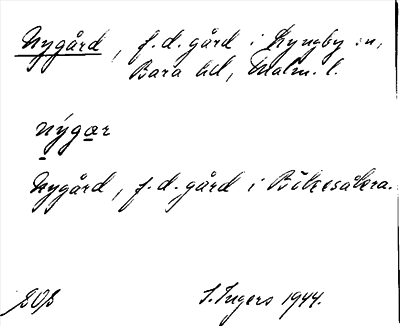 Nygård, f.d. gård i Lyngby sn,
Bara hd, Malm. l.
nýgær
Nygård, f.d. gård i Bökesåkra.
I. Ingers 1944.